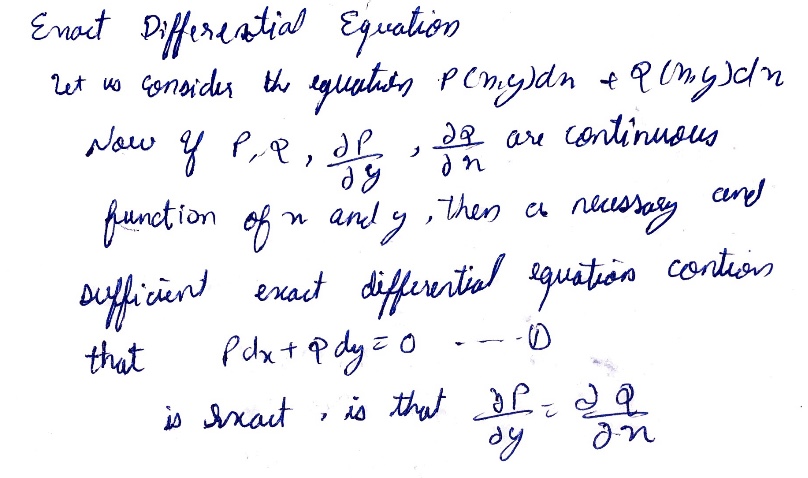 Exact Differential Equation
Let us consider the equation P(x,y)dx + Q(x,y)dx
Now if P, Q, ∂P/∂y, ∂Q/∂x are continuous
function of x and y, then a necessary and
sufficient exact differential equation contion
that Pdx + Qdy = 0 ---- ①
is exact, is that ∂P/∂y = ∂Q/∂x